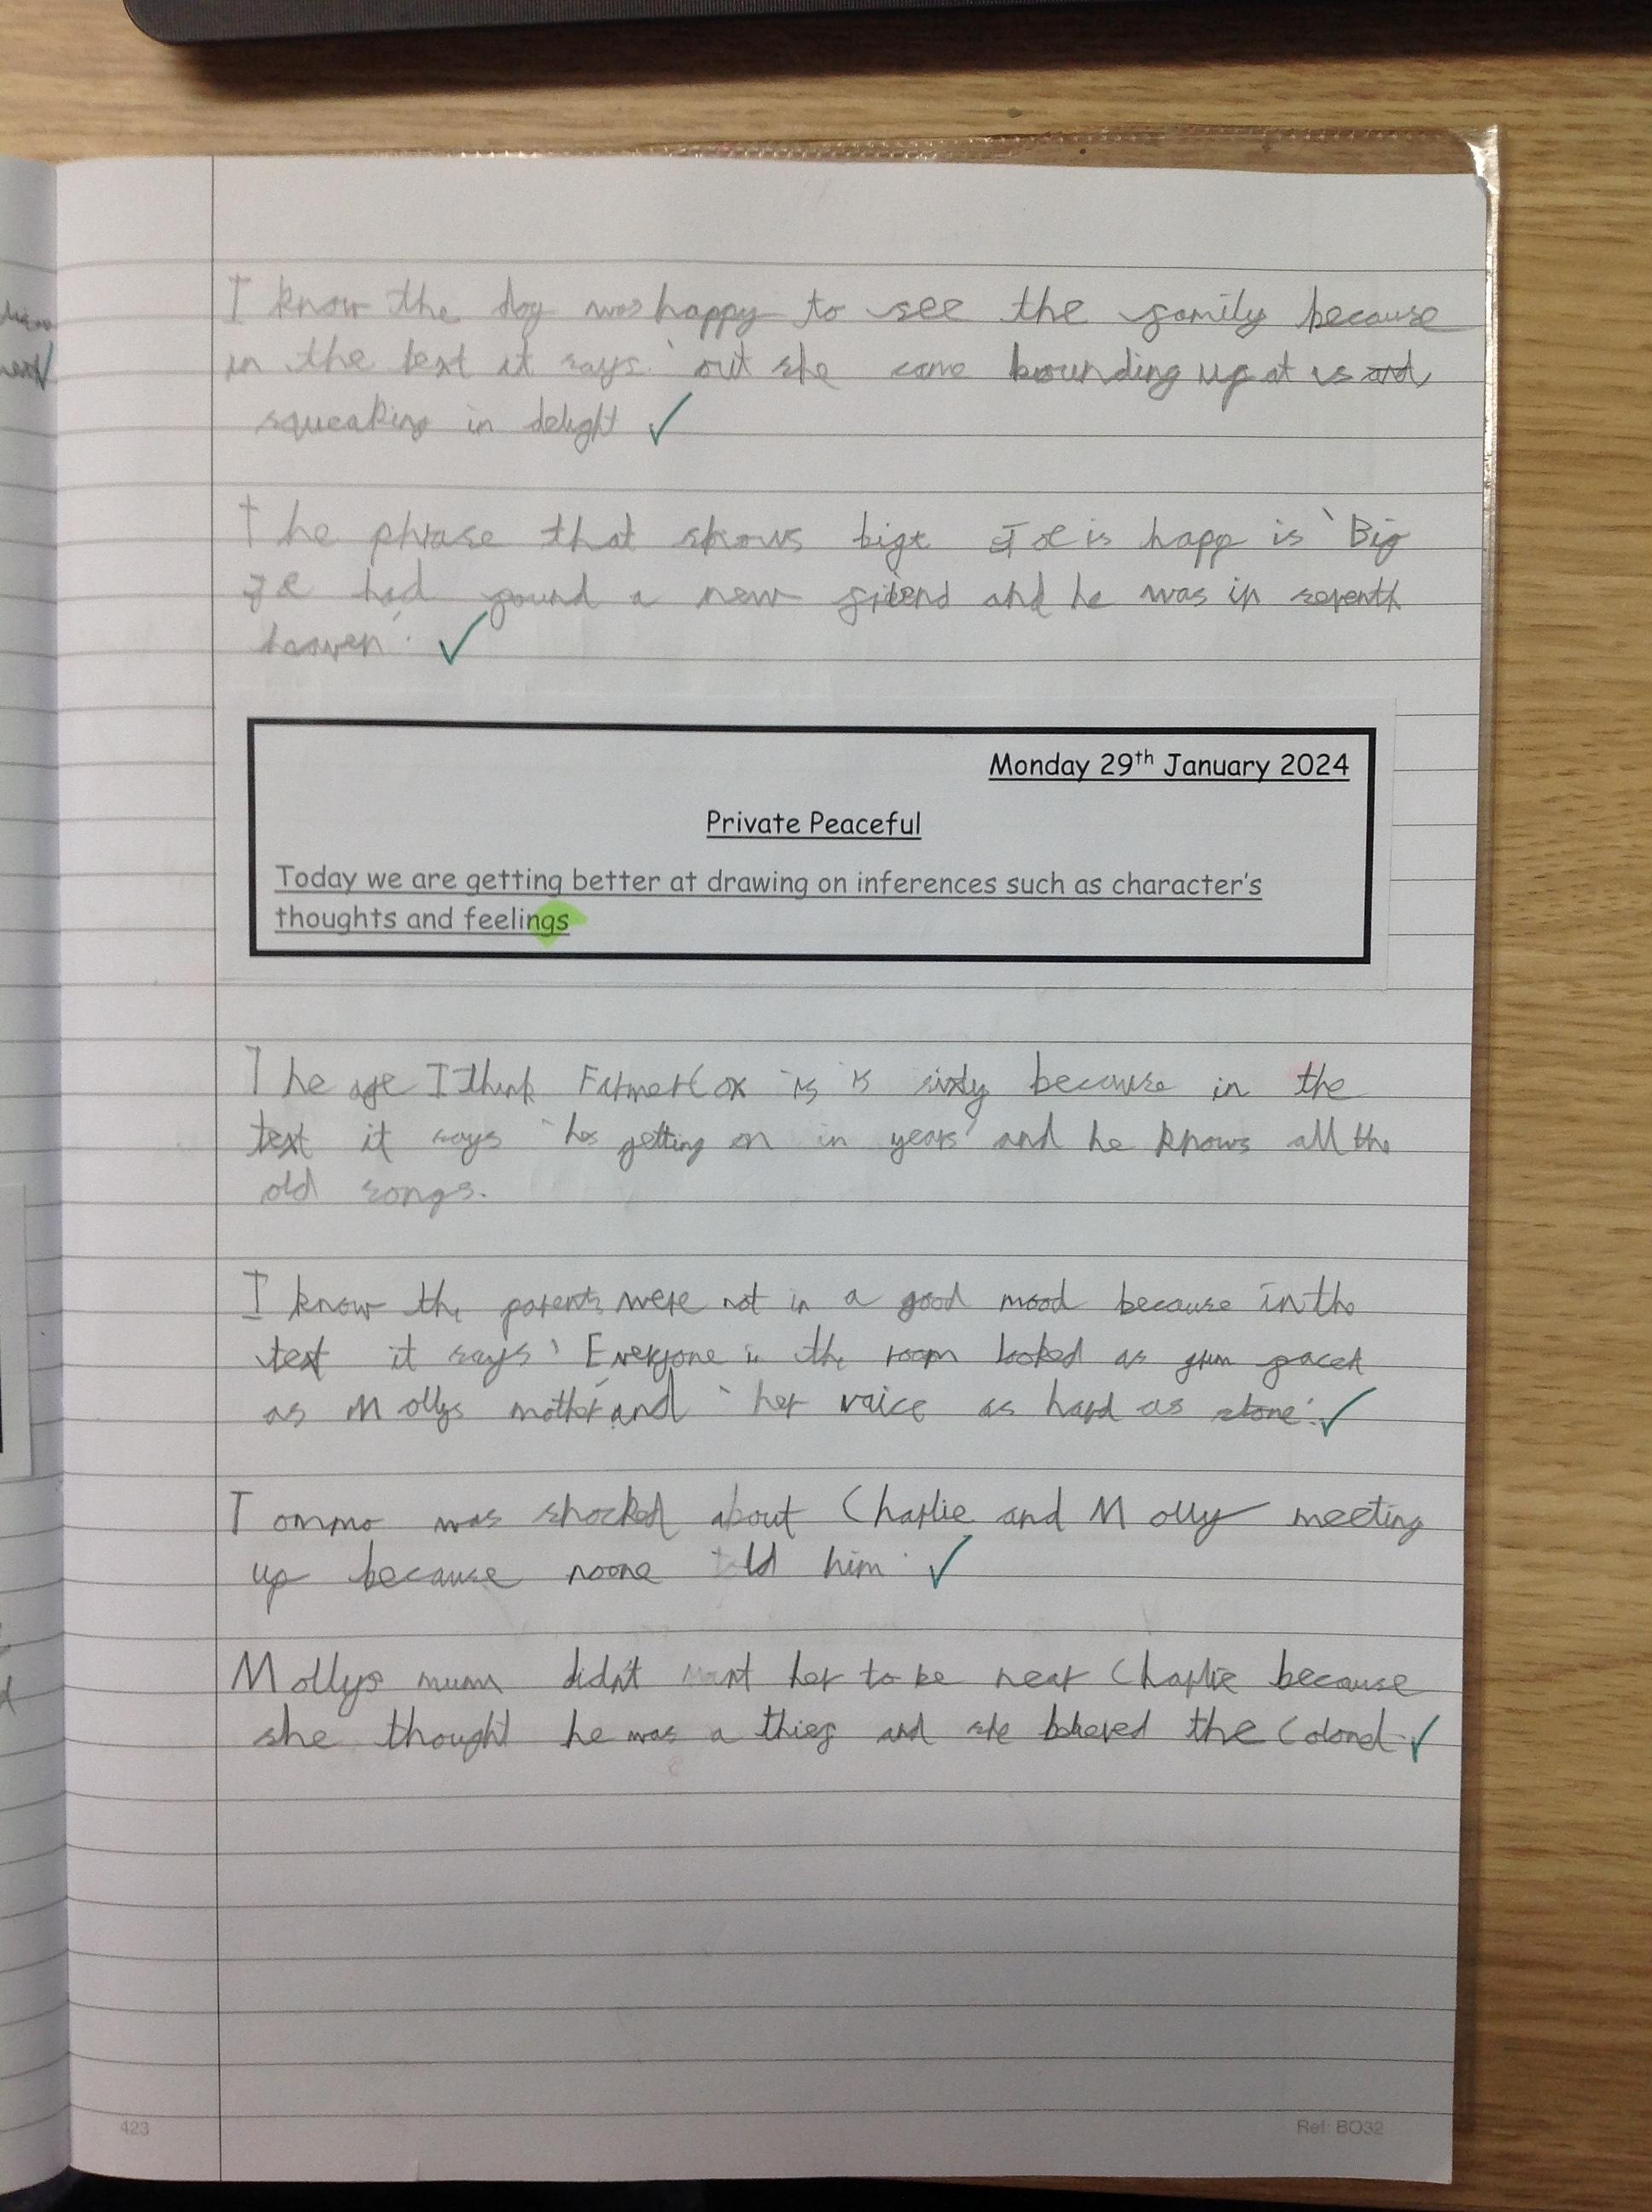 I know the dog was happy to see the family because
in the text it says ' out she came bounding up at us
squeaking in delight
The phrase that shows big Joe is happ is 'Big
Joe had found a new friend and he was in seventh
heaven'.
Monday 29th January 2024
Private Peaceful
Today we are getting better at drawing on inferences such as character's
thoughts and feelings
The age I think Farmer Cox is is sixty because in the
text it says 'hes getting on in years' and he knows all the
old songs.
I know the parents were not in a good mood because in the
text it says ' Everyone in the room looked as grim faced
as Mollys mother' and 'her voice as hard as stone'.
Tommo was shocked about Charlie and Molly meeting
up because noone told him.
Mollys mum didn't want her to be near Charlie because
she thought he was a thief and she believed the Colonel.
423
Ref: BO32